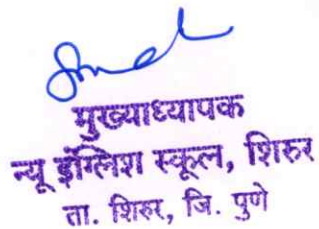 मुख्याध्यापक
न्यू इंग्लिश स्कूल, शिरुर
ता. शिरुर, जि. पुणे